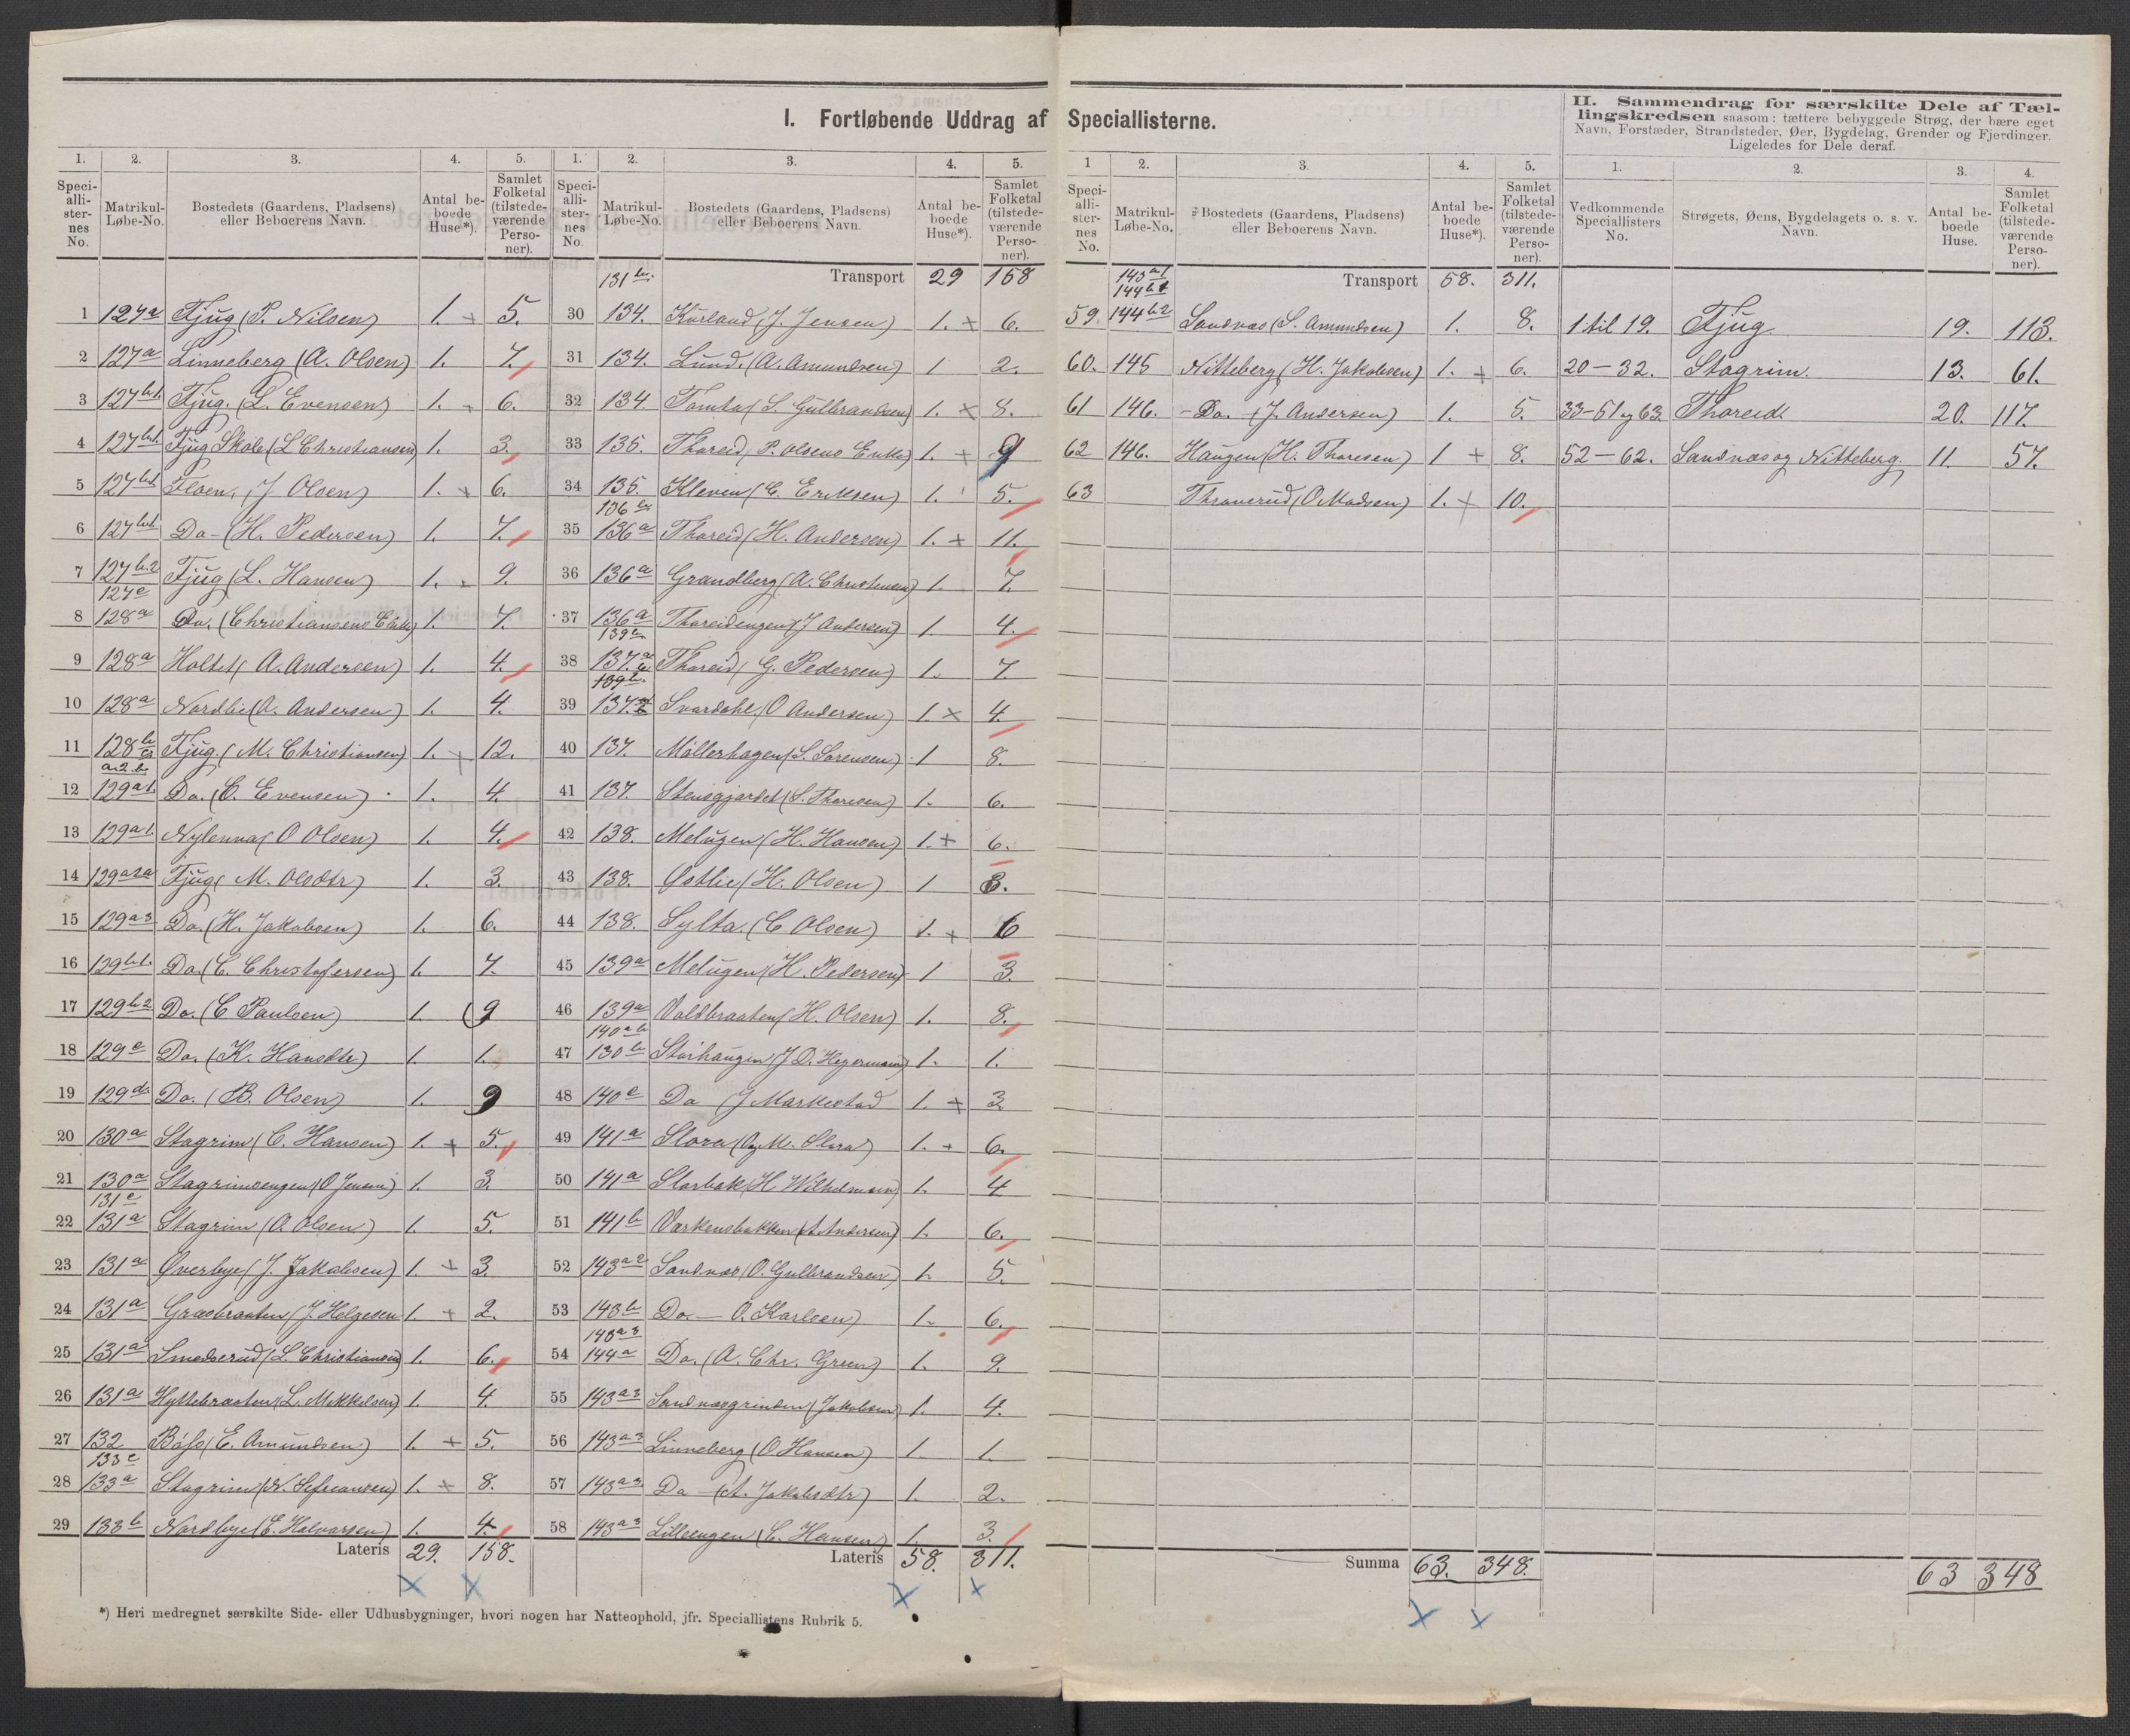 I. Fortløbende Uddrag af Speciallisterne.
II. Sammendrag for særskilte Dele af Tæl-
lingskredsen saasom: tættere bebyggede Strøg, der bære eget
Navn, Forstæder, Strandsteder, Øer, Bygdelag, Grender og Fjerdinger.
Ligeledes for Dele deraf.
1. 2. 3. 4. 5.
Speci-alli-ster-nes No. Matrikul-Løbe-No. Bostedets (Gaardens, Pladsens) eller Beboerens Navn. Antal be-boede Huse*). Samlet Folketal (tilstede-værende Perso-ner).
1 127a Fjug (P. Nilsen) 1. 5.
2 127a Linneberg (A. Olsen) 1. 7.
3 127b1 Fjug. (L. Evensen) 1. 6.
4 127b1 Fjug Skole (L Christiansen) 1. 3.
5 127b1 Floen, (J Olsen) 1. 6.
6 127b1 Do - (H. Pedersen) 1. 7.
7 127b.2 Fjug (L. Hansen) 1. 9.
127c
8 128a Do. (Christiansens Enke) 1. 7.
9 128a Holtet (A. Andersen) 1. 4.
10 128a Nordlie (A. Andersen) 1. 4.
11 128b Fjug. (M. Christiansen) 1. 12.
a.2.b.
12 129a1. Do. (E. Evensen) 1. 4.
13 129a1. Nylenna (O Olsen) 1. 4.
14 129a2a Fjug (M. Olsdtr) 1. 3.
15 129a3 Do. (H. Jakobsen) 1. 6.
16 129b1. Do. (C. Christofersen) 1. 7.
17 129b2 Do. (C Paulsen) 1. 9
18 129c Do. (K. Hansdtr) 1. 1.
19 129d. Do. (B. Olsen) 1. 9
20 130a Stagrim (C. Hansen) 1. 5.
21 130a Stagrimsengen (O Jensen) 1. 3.
131c
22 131a Stagrim (O. Olsen) 1. 5.
23 131a Øverbye (J. Jakobsen) 1. 3.
24 131a Græsbraaten (J. Helgesen 1. 2.
25 131a Smedserud (L. Christiansen) 1. 6.
26 131a Hyttebraaten (L. Mikkelsen) 1. 4.
27 132 Bass (E. Amundsen) 1. 5.
133c
28 133a Stagrim (N. Sefreansen) 1. 8.
29 133b Nordbye (E. Halvorsen) 1. 4.
Lateris 29. 158.
*) Heri medregnet særskilte Side- eller Udhusbygninger, hvori nogen har Natteophold, jfr. Speciallistens Rubrik 5.
1. 2. 3. 4. 5.
Speci-alli-ster-nes No. Matrikul-Løbe-No. Bostedets (Gaardens, Pladsens) eller Beboerens Navn. Antal be-boede Huse*). Samlet Folketal (tilstede-værende Perso-ner).
131b. Transport 29 158
30 134. Kurland (J. Jensen) 1. 6.
31 134. Lund. (A. Amundsen) 1 2.
32 134. Tomta (S. Gulbrandsen) 1. 8.
33 135. Thoreid (P. Olsens Enke) 1. 9
34 135. Kleven (C. Eriksen) 1. 5.
136b
35 136a Thoreid (H. Andersen) 1. 11.
36 136a Grandberg (A. Christensen) 1. 7.
37 136a Thoreidengen (J Andersen) 1. 4.
139c
38 137. Thoreid (G. Pedersen) 1. 7
139b.
39 137. Svardahl (O Andersen) 1. 4.
40 137. Møllerhagen (S. Sørensen) 1 8.
41 137. Stensgjerdet (S. Thoresen) 1. 6.
42 138. Melugen (H. Hansen) 1. 6.
43 138. Østlie (H. Olsen) 1 3.
44 138. Sylta. (C Olsen) 1. 6
45 139a Melugen (H. Pedersen) 1 3.
46 139a Valdbraaten (H. Olsen) 1. 8.
140ab
47 130b Storhaugen (J D. Hegermann) 1. 1.
48 140c Do J Markestad 1. 3.
49 141a Slora (Og M. Slora) 1. 6.
50 141a Slorbak (H Wilhelmsen) 1. 4
51 141b Varkensbakken (A. Andersen) 1. 6.
52 143a2 Sandnæs (O. Gulbrandsen) 1. 5.
53 143b Do. - O. Karlsen) 1. 6.
143a3
54 144a Do. (A. Chr. Green) 1. 9.
55 143a3 Sandnæsgrinden (Jakobsen) 1. 4.
56 143a3 Linneberg (O Hansen) 1. 1.
57 143a3 Do - (A. Jakobsdtr) 1. 2.
58 143a3 Lilleengen (C. Hansen) 1. 3.
Lateris 58. 311.
1 2. 3. 4. 5.
Speci-alli-ster-nes No. Matrikul-Løbe-No. Bostedets (Gaardens, Pladsens) eller Beboerens Navn. Antal be-boede Huse*). Samlet Folketal (tilstede-værende Perso-ner).
143a1
144b1 Transport 58. 311.
59. 144b2 Sandnæs (S. Amundsen) 1. 8.
60. 145 Nitteberg (H. Jakobsen) 1. 6.
61 146. - Do. (J. Andersen) 1. 5.
62 146. Haugen (H. Thoresen) 1 8.
63 Thraverud (O Madsen) 1. 10.
Summa 63. 348.
1. 2. 3. 4.
Vedkommende Speciallisters No. Strøgets, Øens, Bygdelagets o. s. v. Navn. Antal be-boede Huse. Samlet Folketal (tilstede-værende Perso-ner).
1 til 19. Fjug 19. 113.
20 - 32. Stagrim. 13. 61.
33-51 og 63 Thoreid. 20. 117.
52 - 62. Sandnæs og Nitteberg 11. 57.
63 348